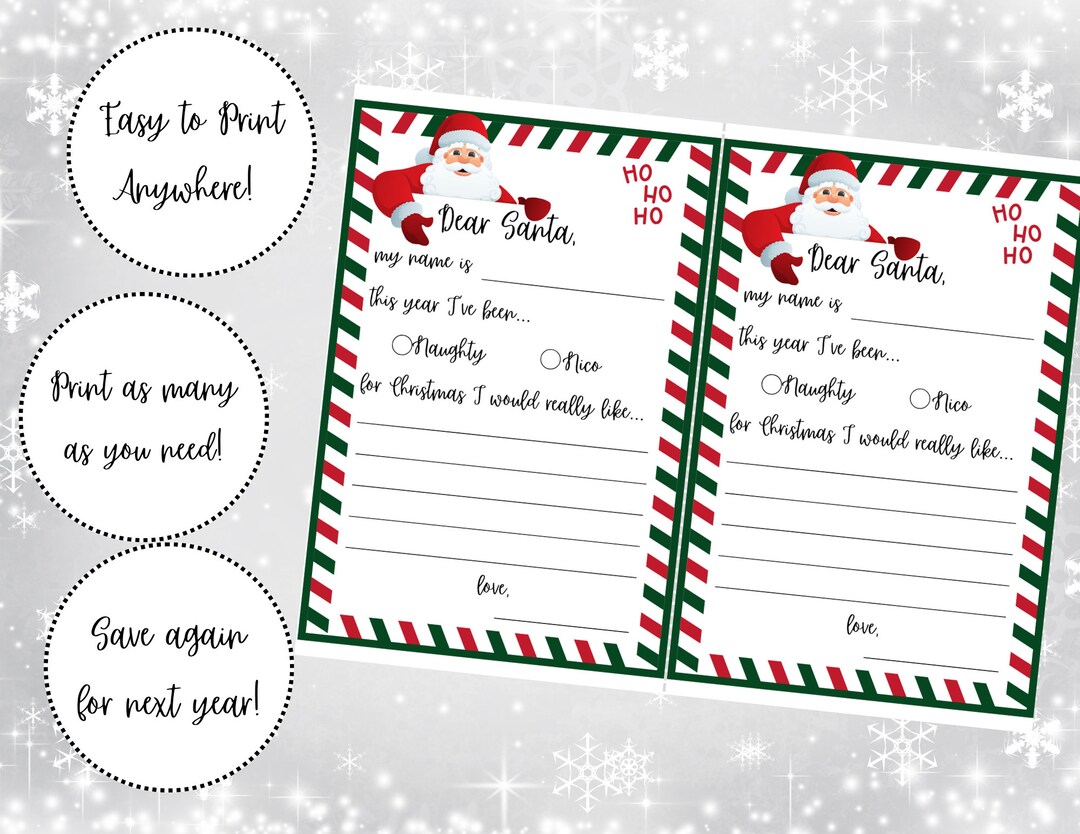 Easy to Print
Anywhere!
Print as many
as you need!
Save again
for next year!
HO
HO
HO
Dear Santa,
my name is
this year I've been...
Naughty
Nico
for Christmas I would really like...
love,
HO
HO
HO
Dear Santa,
my name is
this year I've been...
Naughty
Nico
for Christmas I would really like...
love,